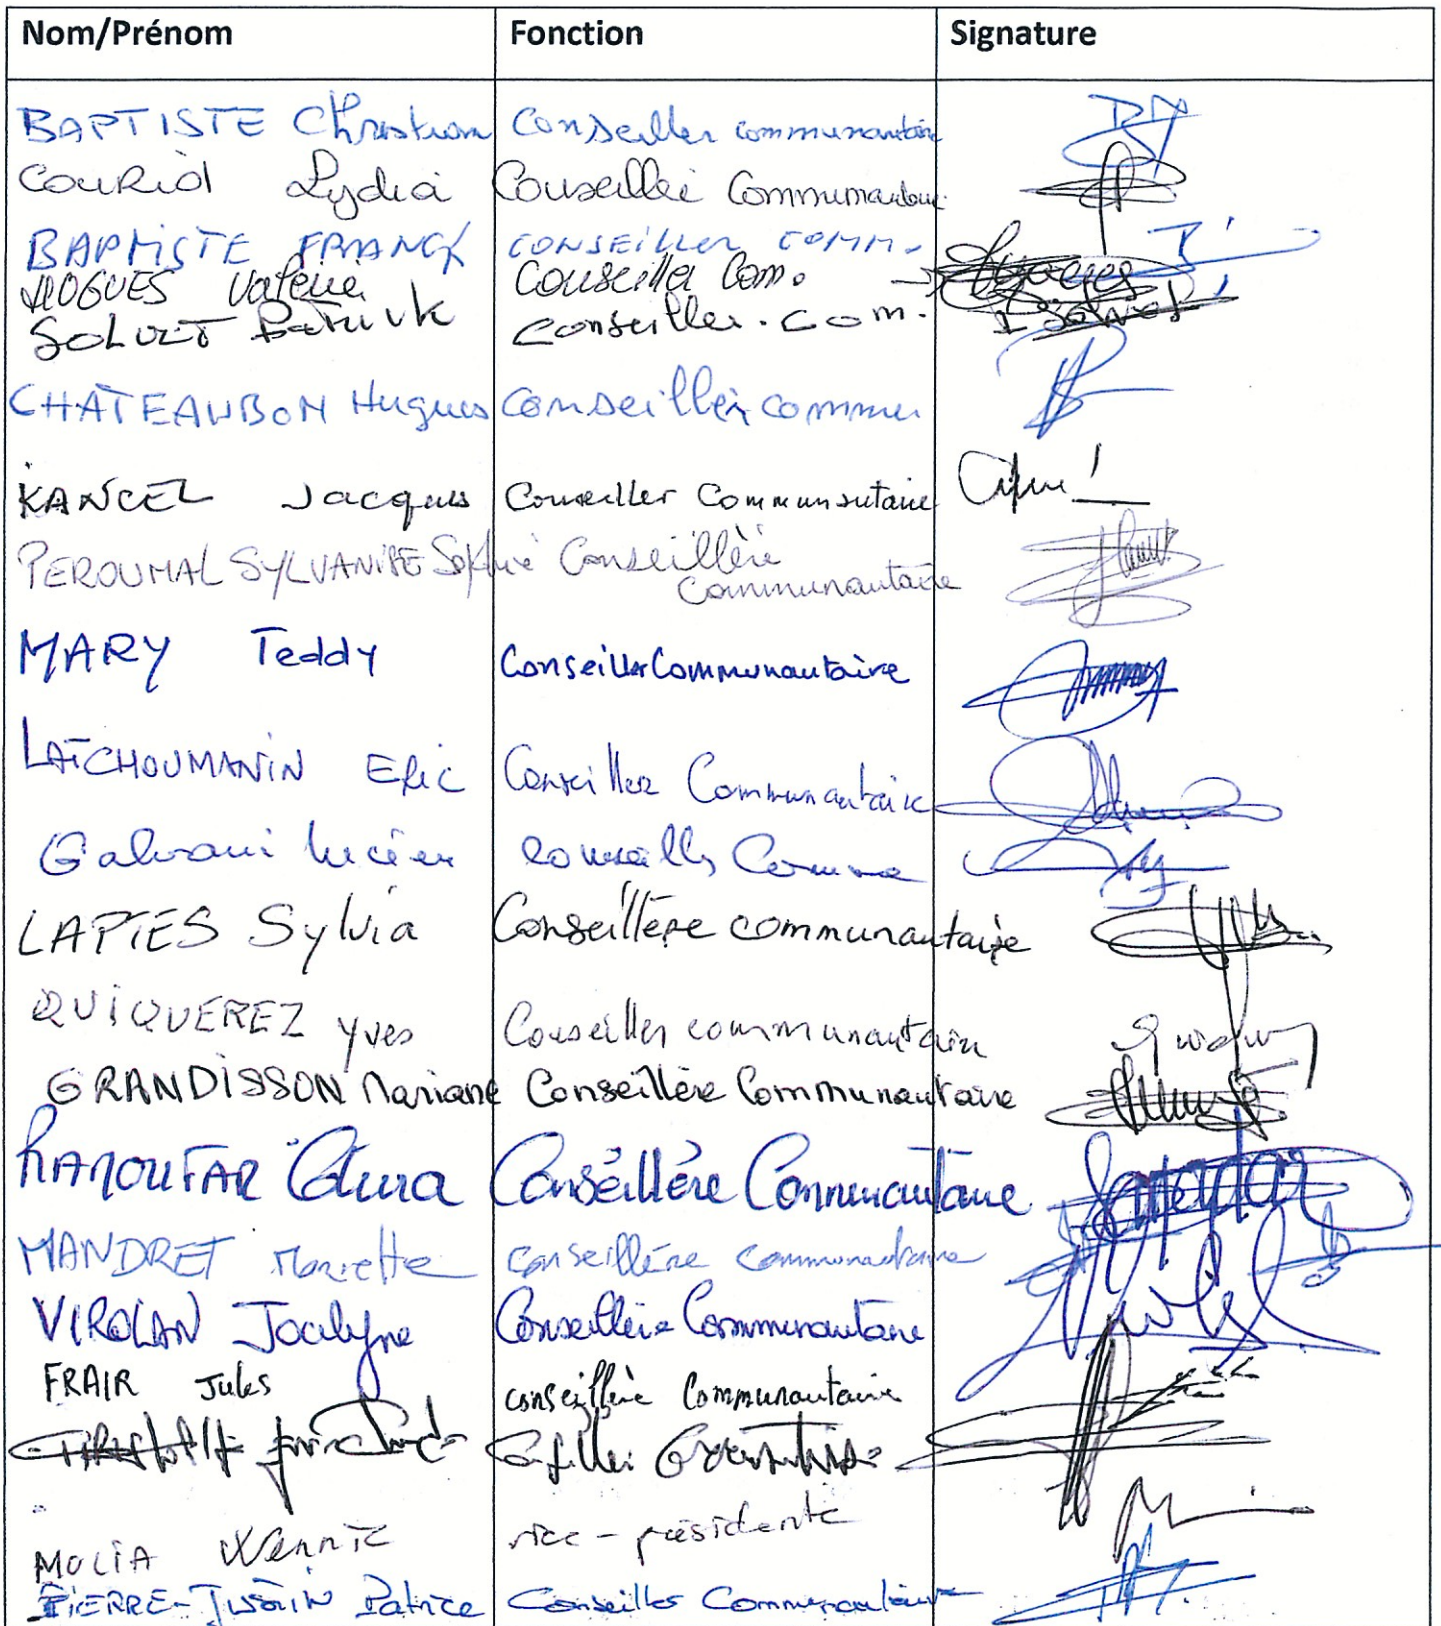 Nom/Prénom Fonction Signature
BAPTISTE Christian Conseiller communautaire
COURIOL Lydia Conseillère Communautaire
BAPTISTE FRANCK CONSEILLER COMM.
HUGUES Valérie Conseiller Com.
SOLVET Patrick Conseiller. Com.
CHATEAUBON Hugues Conseiller commu
KANCEL Jacques Conseiller Communautaire
PEROUMAL SYLVANISE Sophie Conseillère
Communautaire
MARY Teddy Conseiller Communautaire
LATCHOUMANIN Eric Conseiller Communautaire
Galvani Lucien Conseiller Commu
LAPTES Sylvia Conseillère communautaire
QUIQUEREZ Yves Conseiller communautaire
GRANDISSON Mariane Conseillère Communautaire
RAMOUTAR Conseillère Communautaire
MANDRET Mariette conseillère communautaire
VIROLAN Jocelyne Conseillère Communautaire
FRAIR Jules conseillère Communautaire
MOLIA Wennie vice-présidente
PIERRE-JUSTIN Patrice Conseiller Communautaire